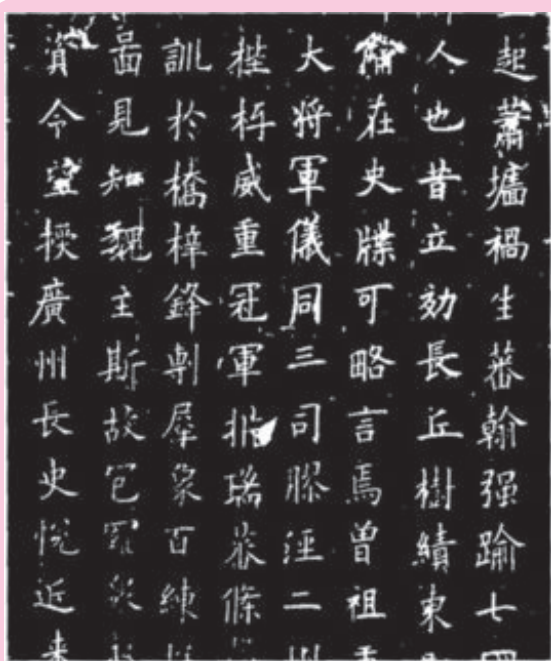 起蕭墻禍生蕃翰强踰七
人也昔立効長丘樹績東
在史牒可略言焉曾祖
大将軍儀同三司膠涇二州
威重冠軍瑞條
訓於橋梓鋒剸犀象百練
見知魏主斯故
資令望授廣州長史悅近来